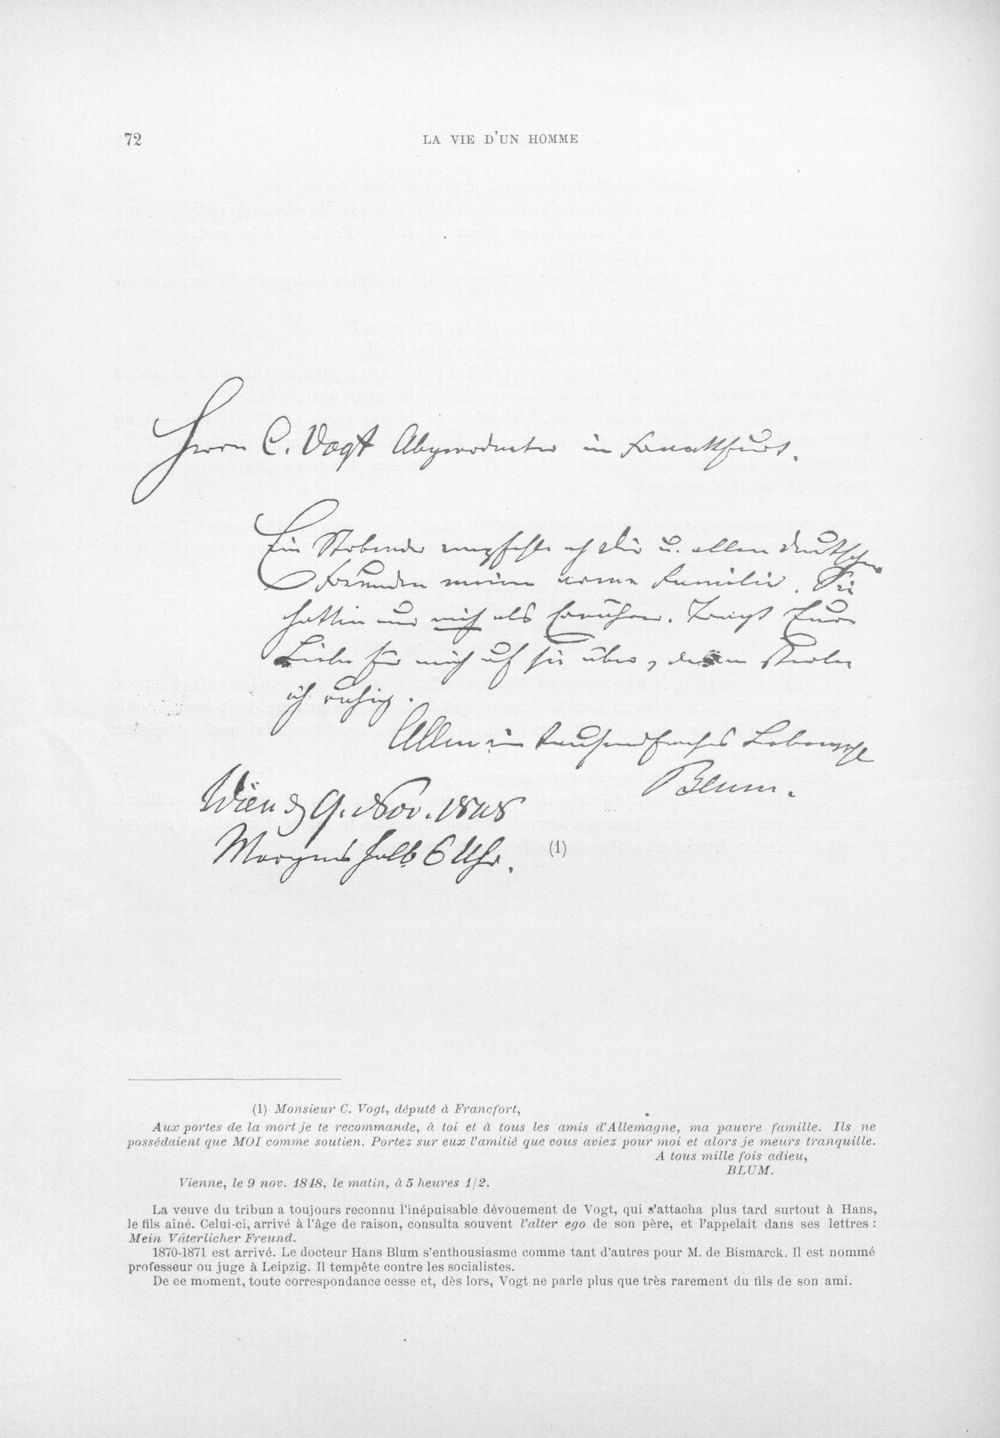 72
LA VIE D'UN HOMME
Herrn C. Vogt Abgeordneter in Frankfurt.
Ein Sterbender empfehle ich Dir u. allen deutschen
Freunden meine arme Familie. Sie
hatten nur mich als Ernährer. Tragt Eure
Liebe für mich auf sie über, dann sterbe
ich ruhig.
Allen ein tausendfaches Lebewohl
Blum.
Wien d. 9. Nov. 1848
Morgens halb 6 Uhr.
(1)
(1) Monsieur C. Vogt, député à Francfort,
Aux portes de la mort je te recommande, à toi et à tous les amis d'Allemagne, ma pauvre famille. Ils ne
possédaient que MOI comme soutien. Portez sur eux l'amitié que vous aviez pour moi et alors je meurs tranquille.
A tous mille fois adieu,
BLUM.
Vienne, le 9 nov. 1848, le matin, à 5 heures 1/2.
La veuve du tribun a toujours reconnu l'inépuisable dévouement de Vogt, qui s'attacha plus tard surtout à Hans,
le fils aîné. Celui-ci, arrivé à l'âge de raison, consulta souvent l'alter ego de son père, et l'appelait dans ses lettres :
Mein Väterlicher Freund.
1870-1871 est arrivé. Le docteur Hans Blum s'enthousiasme comme tant d'autres pour M. de Bismarck. Il est nommé
professeur ou juge à Leipzig. Il tempête contre les socialistes.
De ce moment, toute correspondance cesse et, dès lors, Vogt ne parle plus que très rarement du fils de son ami.